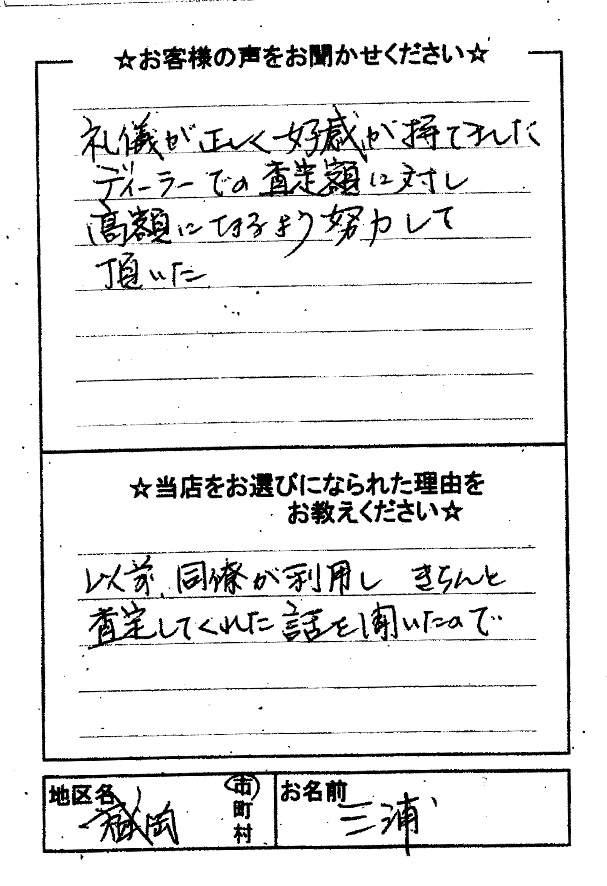 ☆お客様の声をお聞かせください☆
礼儀が正しく好感が持てました
ディーラーでの査定額に対し
高額になるよう努力して
頂いた
☆当店をお選びになられた理由を
お教えください☆
以前、同僚が利用し きちんと
査定してくれた話を聞いたので
地区名 盛岡 市
町
村
お名前 三浦